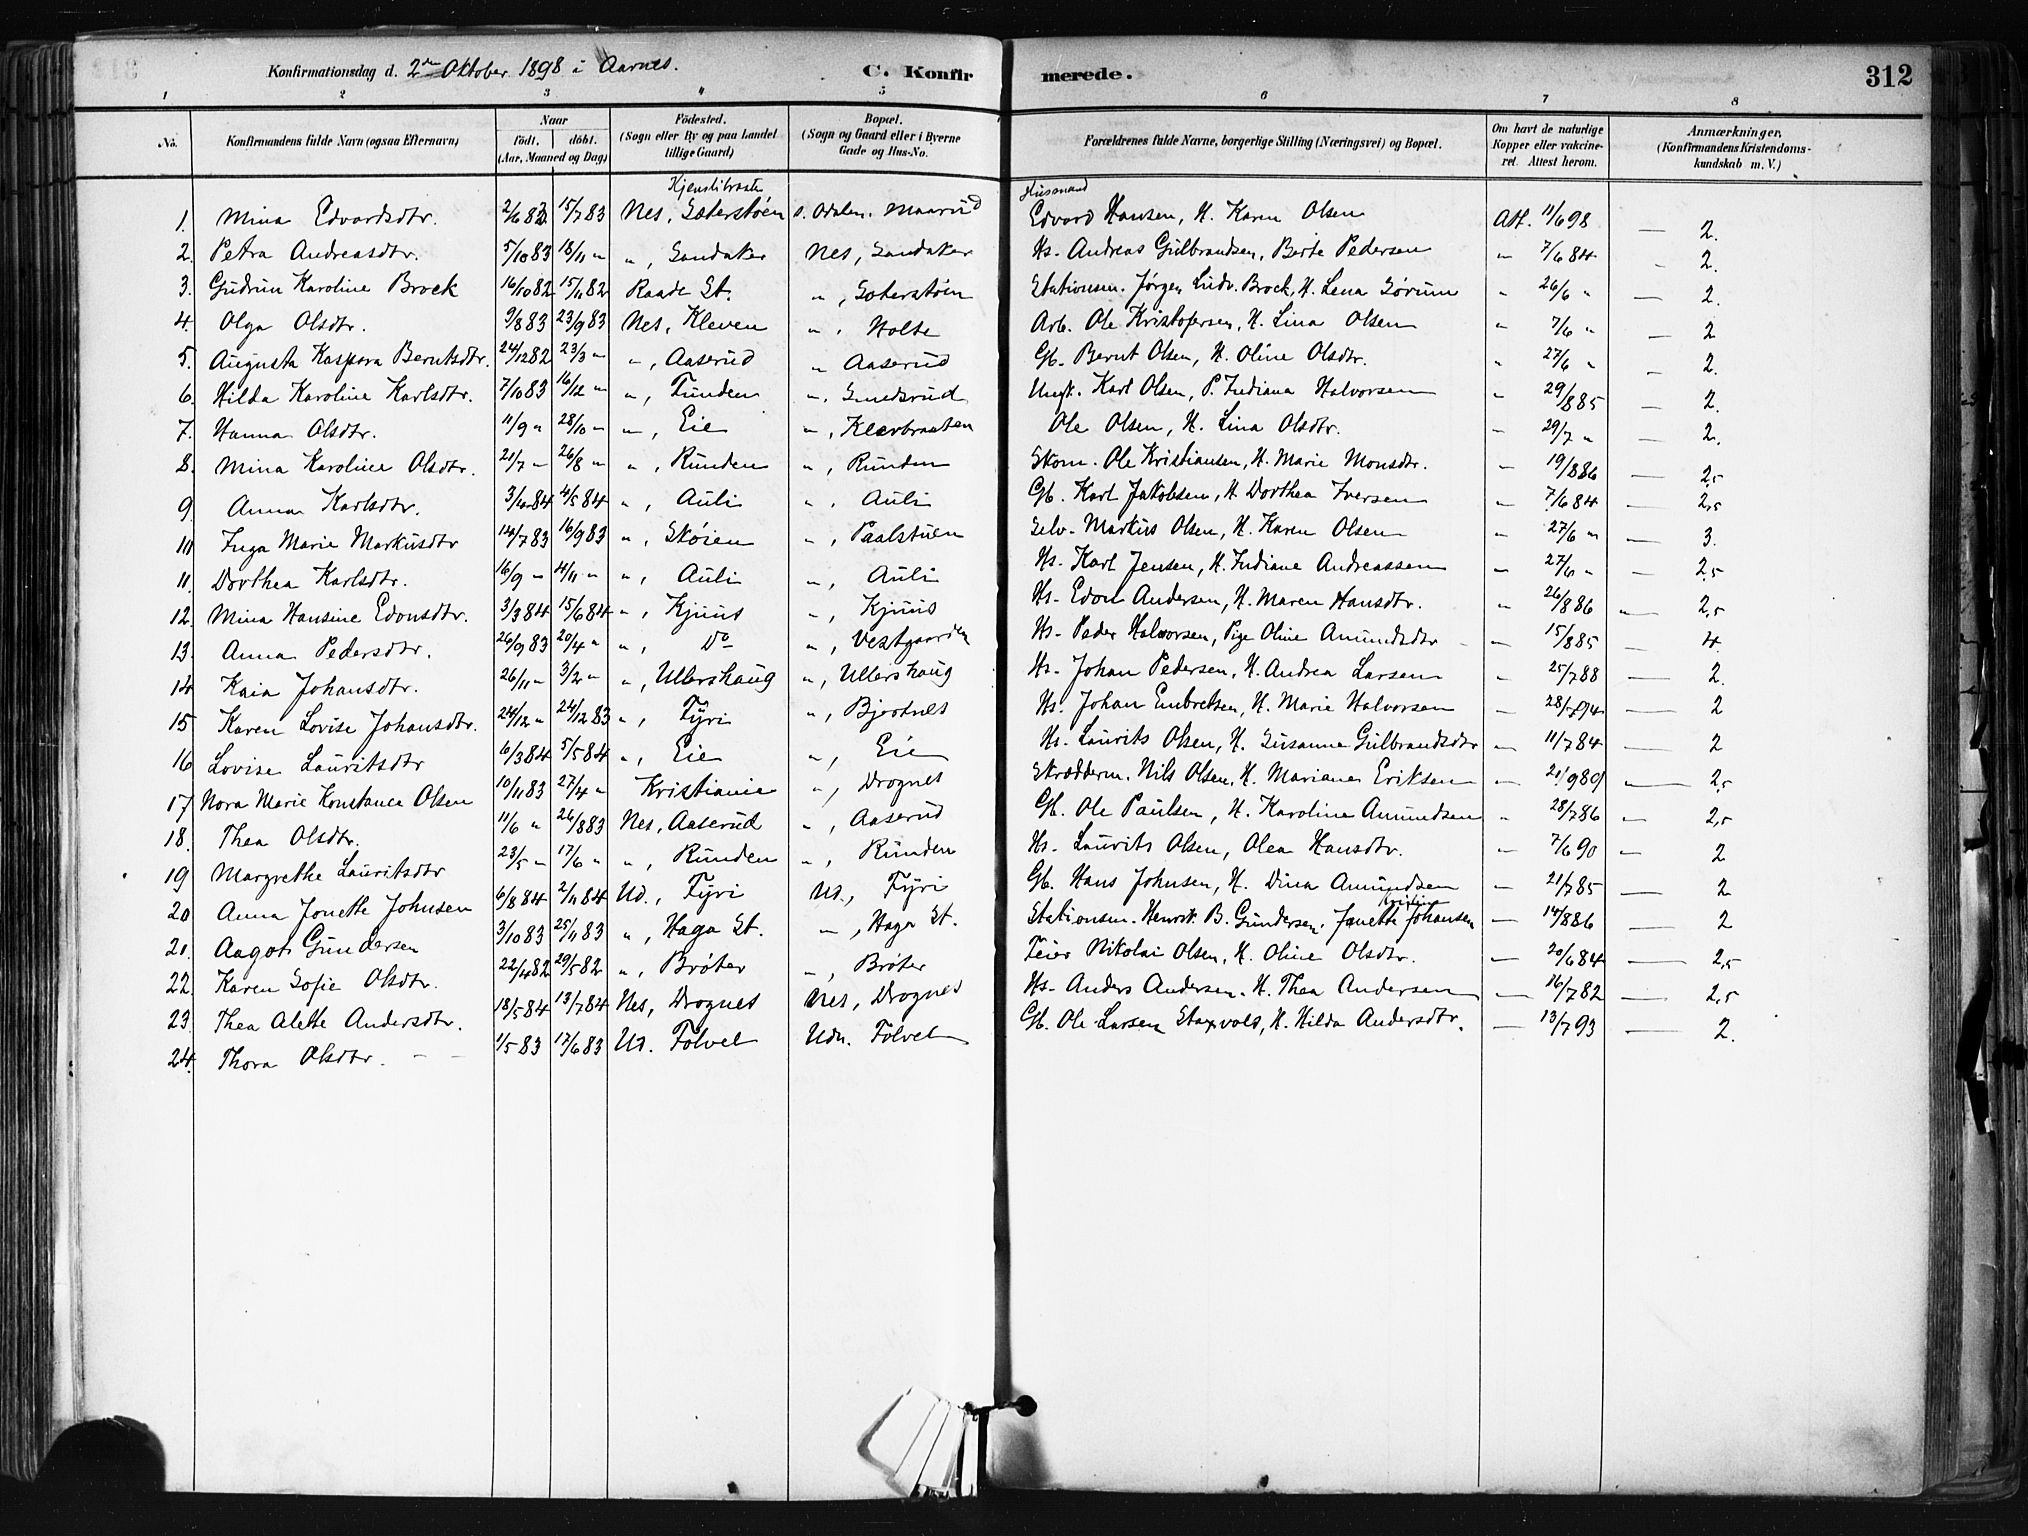 Konfirmationsdag d. 2den Oktober 1898 i Aarnes. C. Konfirmerede. 312
1 2 3 4 5 6 7 8
No. Konfirmandens fulde Navn (ogsaa Efternavn) Naar födt. döbt. (Aar, Maaned og Dag) Födested. (Sogn eller By og paa Landet tillige Gaard) Bopæl. (Sogn og Gaard eller i Byerne Gade og Hus-No. Forældrenes fulde Navne, borgerlige Stilling (Næringsvei) og Bopæl. Om havt de naturlige Kopper eller vakcineret. Attest herom. Anmærkninger, (Konfirmandens Kristendomskundskab m. V.)
1. Mina Edvardsdtr. 2/6 83 15/7 83 Nes, Sæterstøen S. Odalen. Maarud Husmand Edvard Hansen, H. Karen Olsen Att. 11/6 98 — 2.
2. Petra Andreasdtr. 5/10 83 18/11 " ", Sandaker Nes, Sandaker Hs. Andreas Gulbrandsen, Berte Pedersen " 7/6 84 - 2.
3. Gudrun Karoline Brock 16/10 82 15/11 82 Raade St. ", Seterstøen Stationsm. Jørgen Ludv. Brock, H. Lena Sørum " 26/6 " — 2.
4. Olga Olsdtr. 9/8 83 23/9 83 Nes, Kleven ", Holte Arb. Ole Kristofersen, H. Lina Olsen " 7/6 " — 2
5. Augusta Kaspara Berntsdtr. 24/12 82 23/3 " ", Aaserud " Aaserud Gb. Bernt Olsen, H. Oline Olsdtr. " 27/6 " - 2.
6. Hilda Karoline Karlsdtr. 7/10 83 16/12 " ", Funden ", Smedsrud Ungk. Karl Olsen, P. Indiana Halvorsen " 29/8 85 — 2.
7. Hanna Olsdtr. 11/9 " 28/10 " ", Eie ", Kleverbraaten Ole Olsen, H. Lina Olsdtr. " 29/7 " — 2.
8. Mina Karoline Olsdtr. 21/7 " 26/8 " ", Runden ", Runden Skom. Ole Kristiansen, H. Marie Monsdtr. " 19/8 86 — 2,5
9. Anna Karlsdtr. 3/4 84 4/5 84 ", Auli ", Auli Gb. Karl Jakobsen, H. Dorthea Iversen " 7/6 84 — 2,5
10 Inga Marie Markusdtr 14/7 83 16/9 83 ", Skøien ", Paalstuen Selv. Markus Olsen, H. Karen Olsen " 27/6 " — 3.
11. Dorthea Karlsdtr. 16/9 " 4/11 " ", Auli ", Auli Hs. Karl Jensen, H. Indiane Andreassen " 27/6 " — 2,5
12. Mina Hansine Edonsdtr. 3/3 84 15/6 84 ", Kjuus ", Kjuus Hs. Edon Andersen, H. Maren Hansdtr. " 26/8 86 — 2,5
13. Anna Pedersdtr. 26/9 83 20/4 " ", Do ", Vestgaarden Hs. Peder Halvorsen, Pige Oline Amundsdtr " 15/8 85 — 4.
14 Kaia Johansdtr. 26/11 " 3/2 " ", Ullershaug ", Ullershaug Hs. Johan Pedersen, H. Andrea Larsen " 25/7 88 — 2.
15 Karen Lovise Johansdtr. 24/12 " 24/12 83 ", Fyri ", Bjertnes Hs. Johan Embretsen, H. Marie Halvorsen — 2
16 Lovise Lauritsdtr 6/3 84 5/5 84 ", Eie ", Eie Hs. Laurits Olsen, H. Susanne Gulbrandsdtr " 11/7 84 — 2
17 Nora Marie Konstance Olsen 10/11 83 27/4 " Kristiania ", Drognes Skrædderm. Nils Olsen, H. Mariane Eriksen " — 2,5
18. Thea Olsdtr. 11/6 " 26/8 83 Nes, Aaserud ", Aaserud Gb. Ole Paulsen, H. Karoline Amundsen " 28/7 86 — 2,5
19 Margrethe Lauritsdtr 23/5 " 17/6 " ", Runden ", Runden Hs. Laurits Olsen, Olea Hansdtr. " 7/6 90 — 2
20 Anna Jonette Johnsen 6/8 84 2/11 84 Ud., Fyri Ud., Fyri Gb. Hans Johnsen, H. Dina Amundsen " 21/7 85 — 2
21. Aagot Gundersen 3/10 83 25/11 83 ", Haga St. —, Haga St. Stationsm. Henrik B. Gundersen, Janette Johansen — 14/8 86 — 2
22. Karen Sofie Olsdtr. 22/4 82 29/5 82 ", Brøter ", Brøter Feier Nikolai Olsen, H. Oline Olsdtr. — 20/6 84 — 2,5
23. Thea Alette Andersdtr. 18/5 84 13/7 84 Nes, Drognes Nes, Drognes Hs. Anders Andersen. H. Thea Andersen — 16/7 82 — 2,5
24. Thora Olsdtr. — — 1/5 83 17/6 83 Ud. Folvel Udn. Folvel Gb. Ole Larsen, H. Hilda Andersdtr. — 13/7 93 — 2.